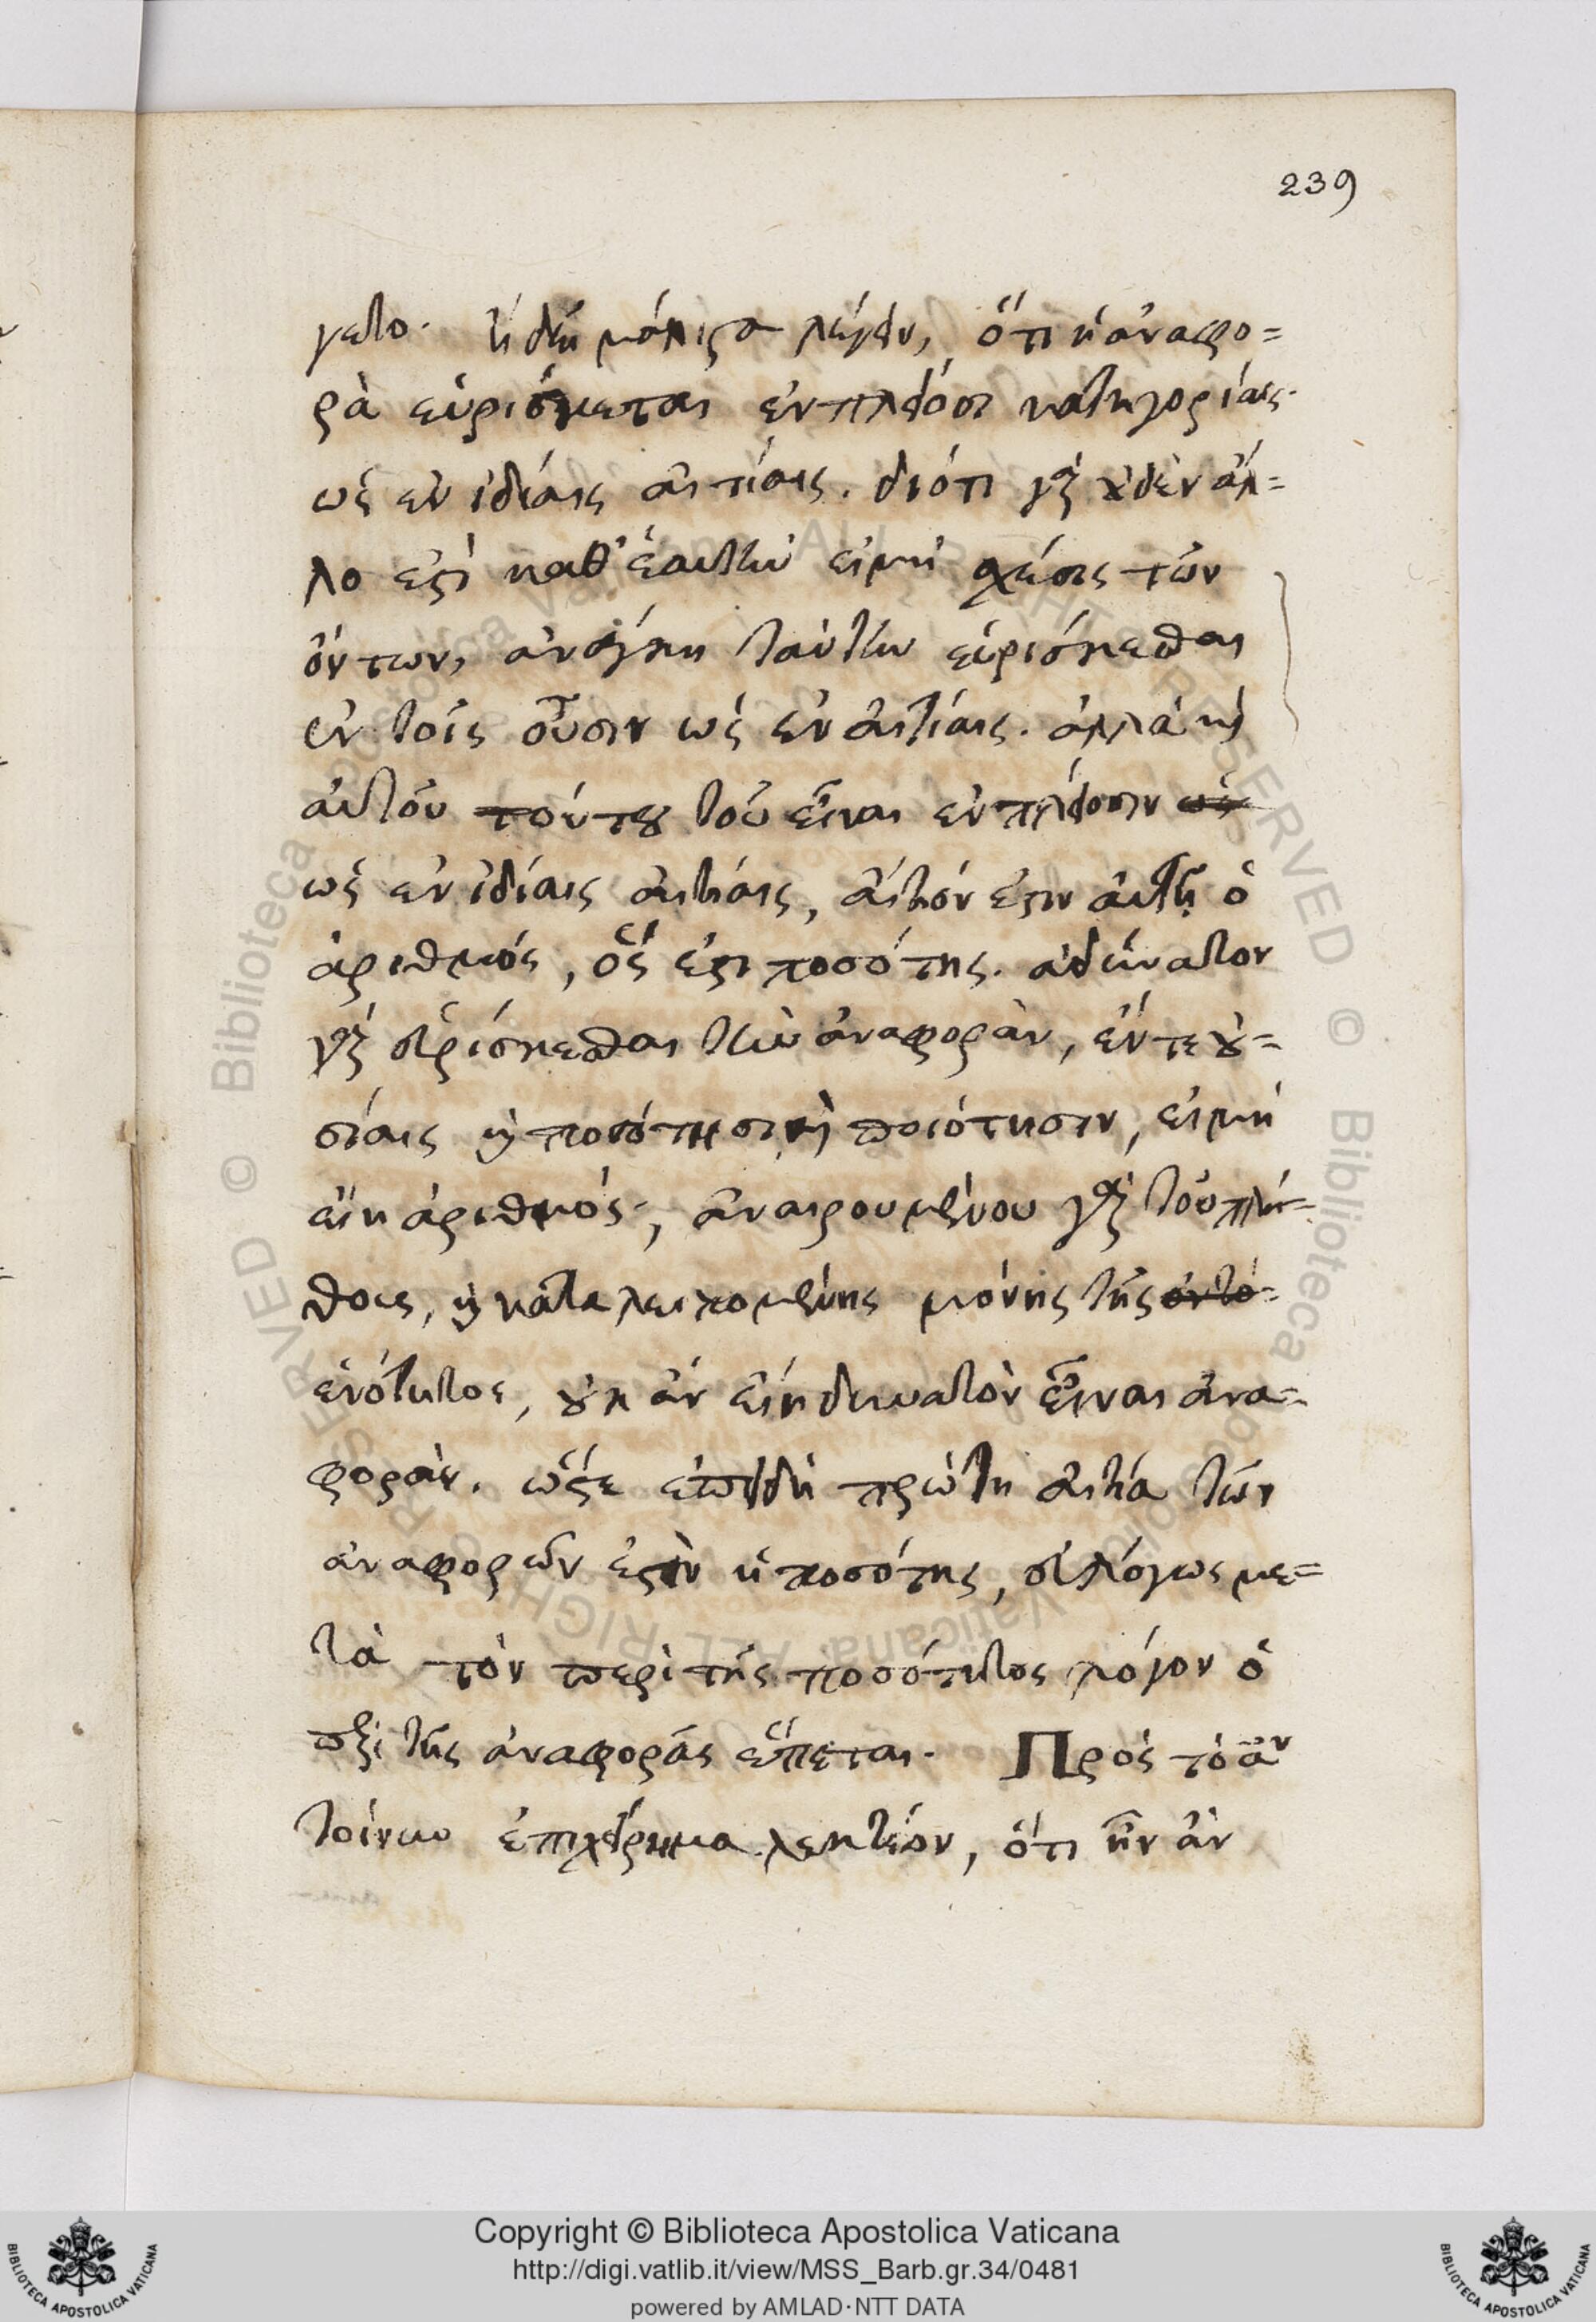 239
γετο. ἢ δεῖ μάλιστα λέγειν, ὅτι ἡ ἀναφο=
ρὰ εὑρίσκεται ἐν πλείοσι κατηγορίαις.
ὡς ἐν ἰδίαις αἰτίαις. διότι γὰρ οὐδὲν ἄλ=
λο ἐστὶ καθ' ἑαυτὴν εἰμὴ σχέσις τῶν
ὄντων, ἀνάγκη ταύτην εὑρίσκεσθαι
ἐν τοῖς οὖσιν ὡς ἐν αἰτίαις. ἀλλὰ καὶ
αὐτοῦ τούτου τοῦ εἶναι ἐν πλείοσιν ὡς
ὡς ἐν ἰδίαις αἰτίαις, αἴτιόν ἐστιν αὐτῇ ὁ
ἀριθμός, ὅς ἐστι ποσότης. ἀδύνατον
γὰρ εὑρίσκεσθαι τὴν ἀναφορὰν, ἔν τε οὐ=
σίαις καὶ ποσότησι καὶ ποιότησιν, εἰμὴ
εἴη ἀριθμός, ἀναιρουμένου γὰρ τοῦ πλή=
θους, καὶ καταλειπομένης μόνης τῆς
ἑνότητος, οὐκ ἂν εἴη δυνατὸν εἶναι ἀνα=
φοράν. ὥστε ἐπειδὴ πρώτη αἰτία τῶν
ἀναφορῶν ἐστὶν ἡ ποσότης, εὐλόγως με=
τὰ τὸν περὶ τῆς ποσότητος λόγον ὁ
περὶ τῆς ἀναφορᾶς ἕπεται. Πρὸς τὸ αον
τοίνυν ἐπιχείρημα λεκτέον, ὅτι ἦν ἂν
Copyright © Biblioteca Apostolica Vaticana
http://digi.vatlib.it/view/MSS_Barb.gr.34/0481
powered by AMLAD·NTT DATA